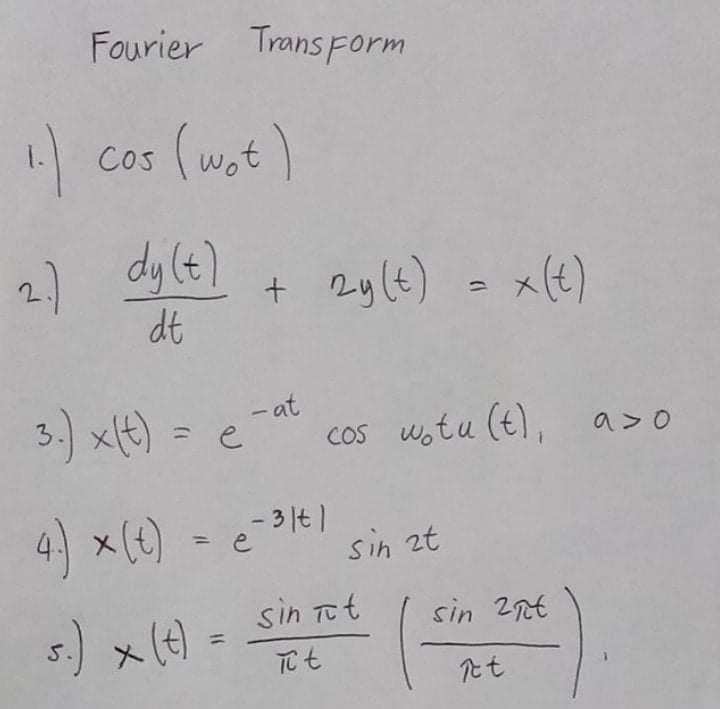 Fourier Transform
1.) cos (ω₀t)
2.) dy(t)/dt + 2y(t) = x(t)
3.) x(t) = e^{-at} cos ω₀tu(t), a>0
4.) x(t) = e^{-3|t|} sin 2t
5.) x(t) = sin πt/πt (sin 2πt/πt).